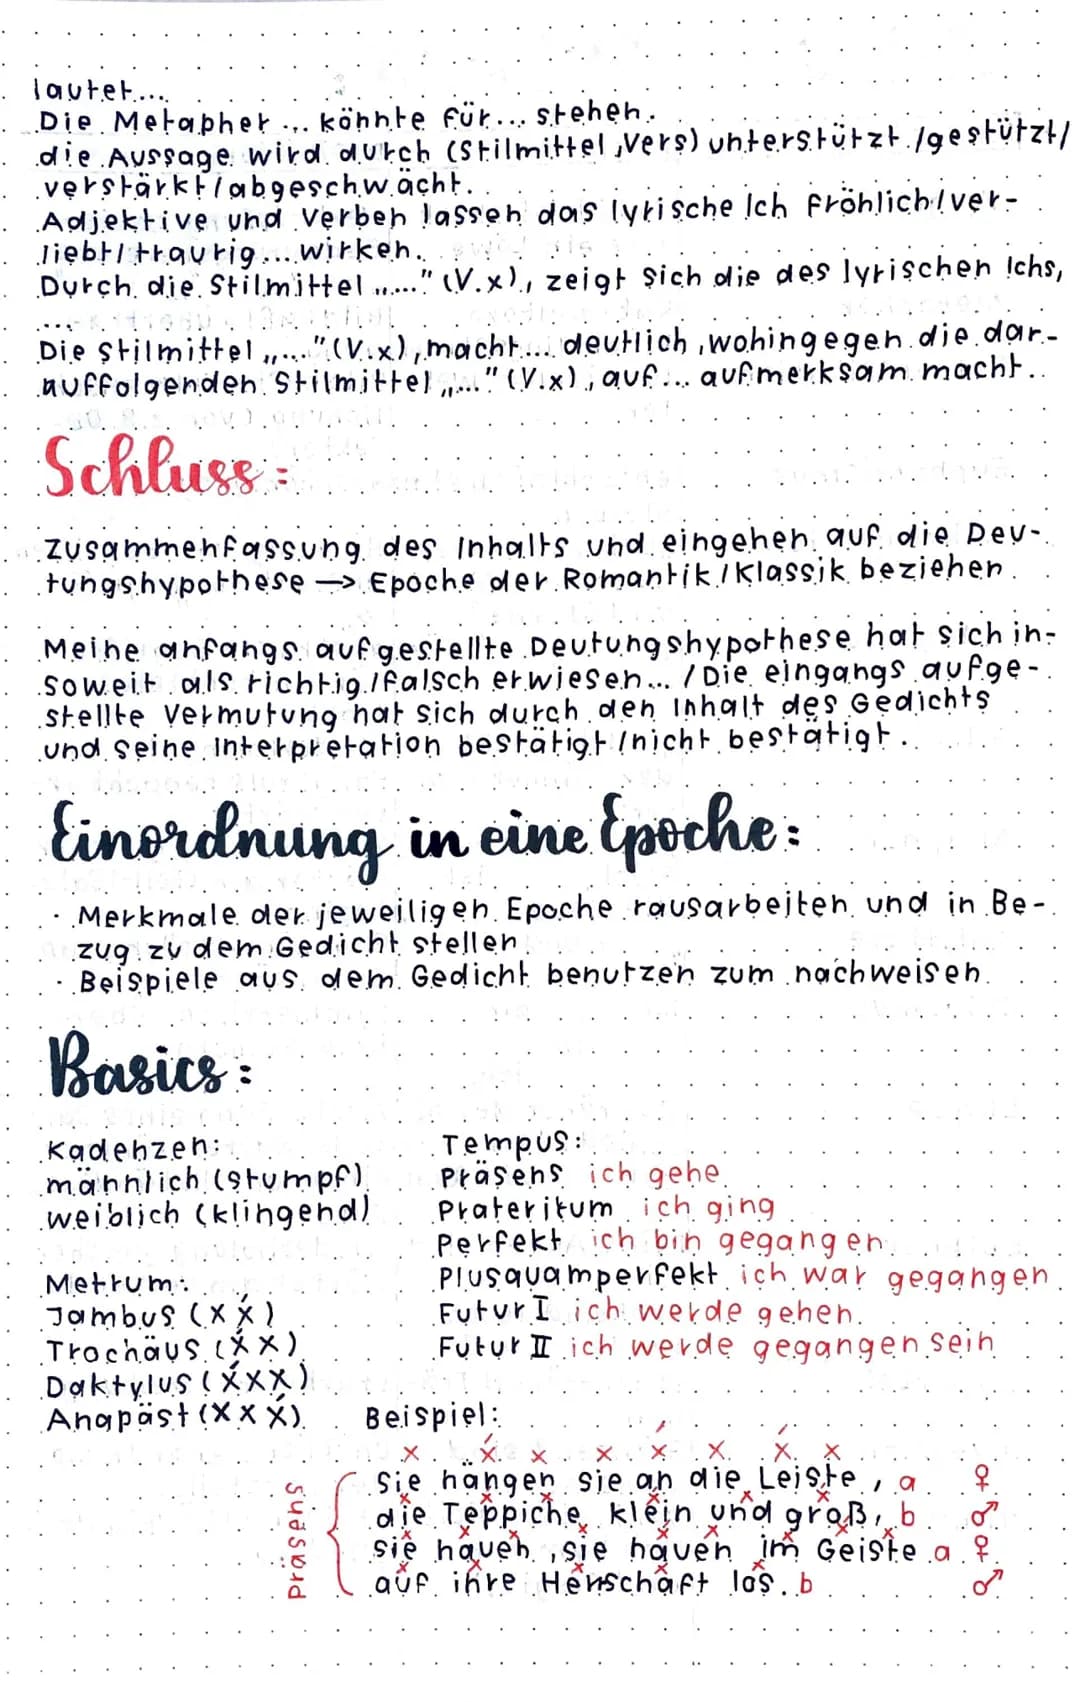 lautet...
Die Metapher ... könnte für... stehen.
die Aussage wird durch (Stilmittel, Vers) unterstützt /gestützt/
verstärkt/abgeschwächt.
Adjektive und Verben lassen das lyrische Ich fröhlich/ver-
liebt/traurig... wirken.
Durch die Stilmittel „....." (V.x), zeigt sich die des lyrischen Ichs,
....
Die Stilmittel „...." (V.x), macht... deutlich, wohingegen die dar-
auffolgenden Stilmittel „..." (V.x), auf... aufmerksam macht..
Schluss:
Zusammenfassung des Inhalts und eingehen auf die Deu-
tungshypothese → Epoche der Romantik/Klassik beziehen
Meine anfangs aufgestellte Deutungshypothese hat sich in-
soweit als richtig/falsch erwiesen... /Die eingangs aufge-
stellte Vermutung hat sich durch den Inhalt des Gedichts
und seine Interpretation bestätigt/nicht bestätigt.
Einordnung in eine Epoche:
· Merkmale der jeweiligen Epoche rausarbeiten und in Be-
zug zu dem Gedicht stellen
· Beispiele aus dem Gedicht benutzen zum nachweisen
Basics:
Kadenzen:
männlich (stumpf)
weiblich (klingend)
Metrum:
Jambus (x x́)
Trochäus (x́ x)
Daktylus (x́xx)
Anapäst (x x x́)
Tempus:
Präsens ich gehe
Präteritum ich ging
Perfekt ich bin gegangen
Plusquamperfekt ich war gegangen
Futur I ich werde gehen
Futur II ich werde gegangen sein
Beispiel:
x x́ x x x́ x x́ x
Sie hängen sie an die Leiste, a ♀
die Teppiche klein und groß, b ♂
sie hauen, sie hauen im Geiste a ♀
auf ihre Herrschaft los. b ♂
Präsens